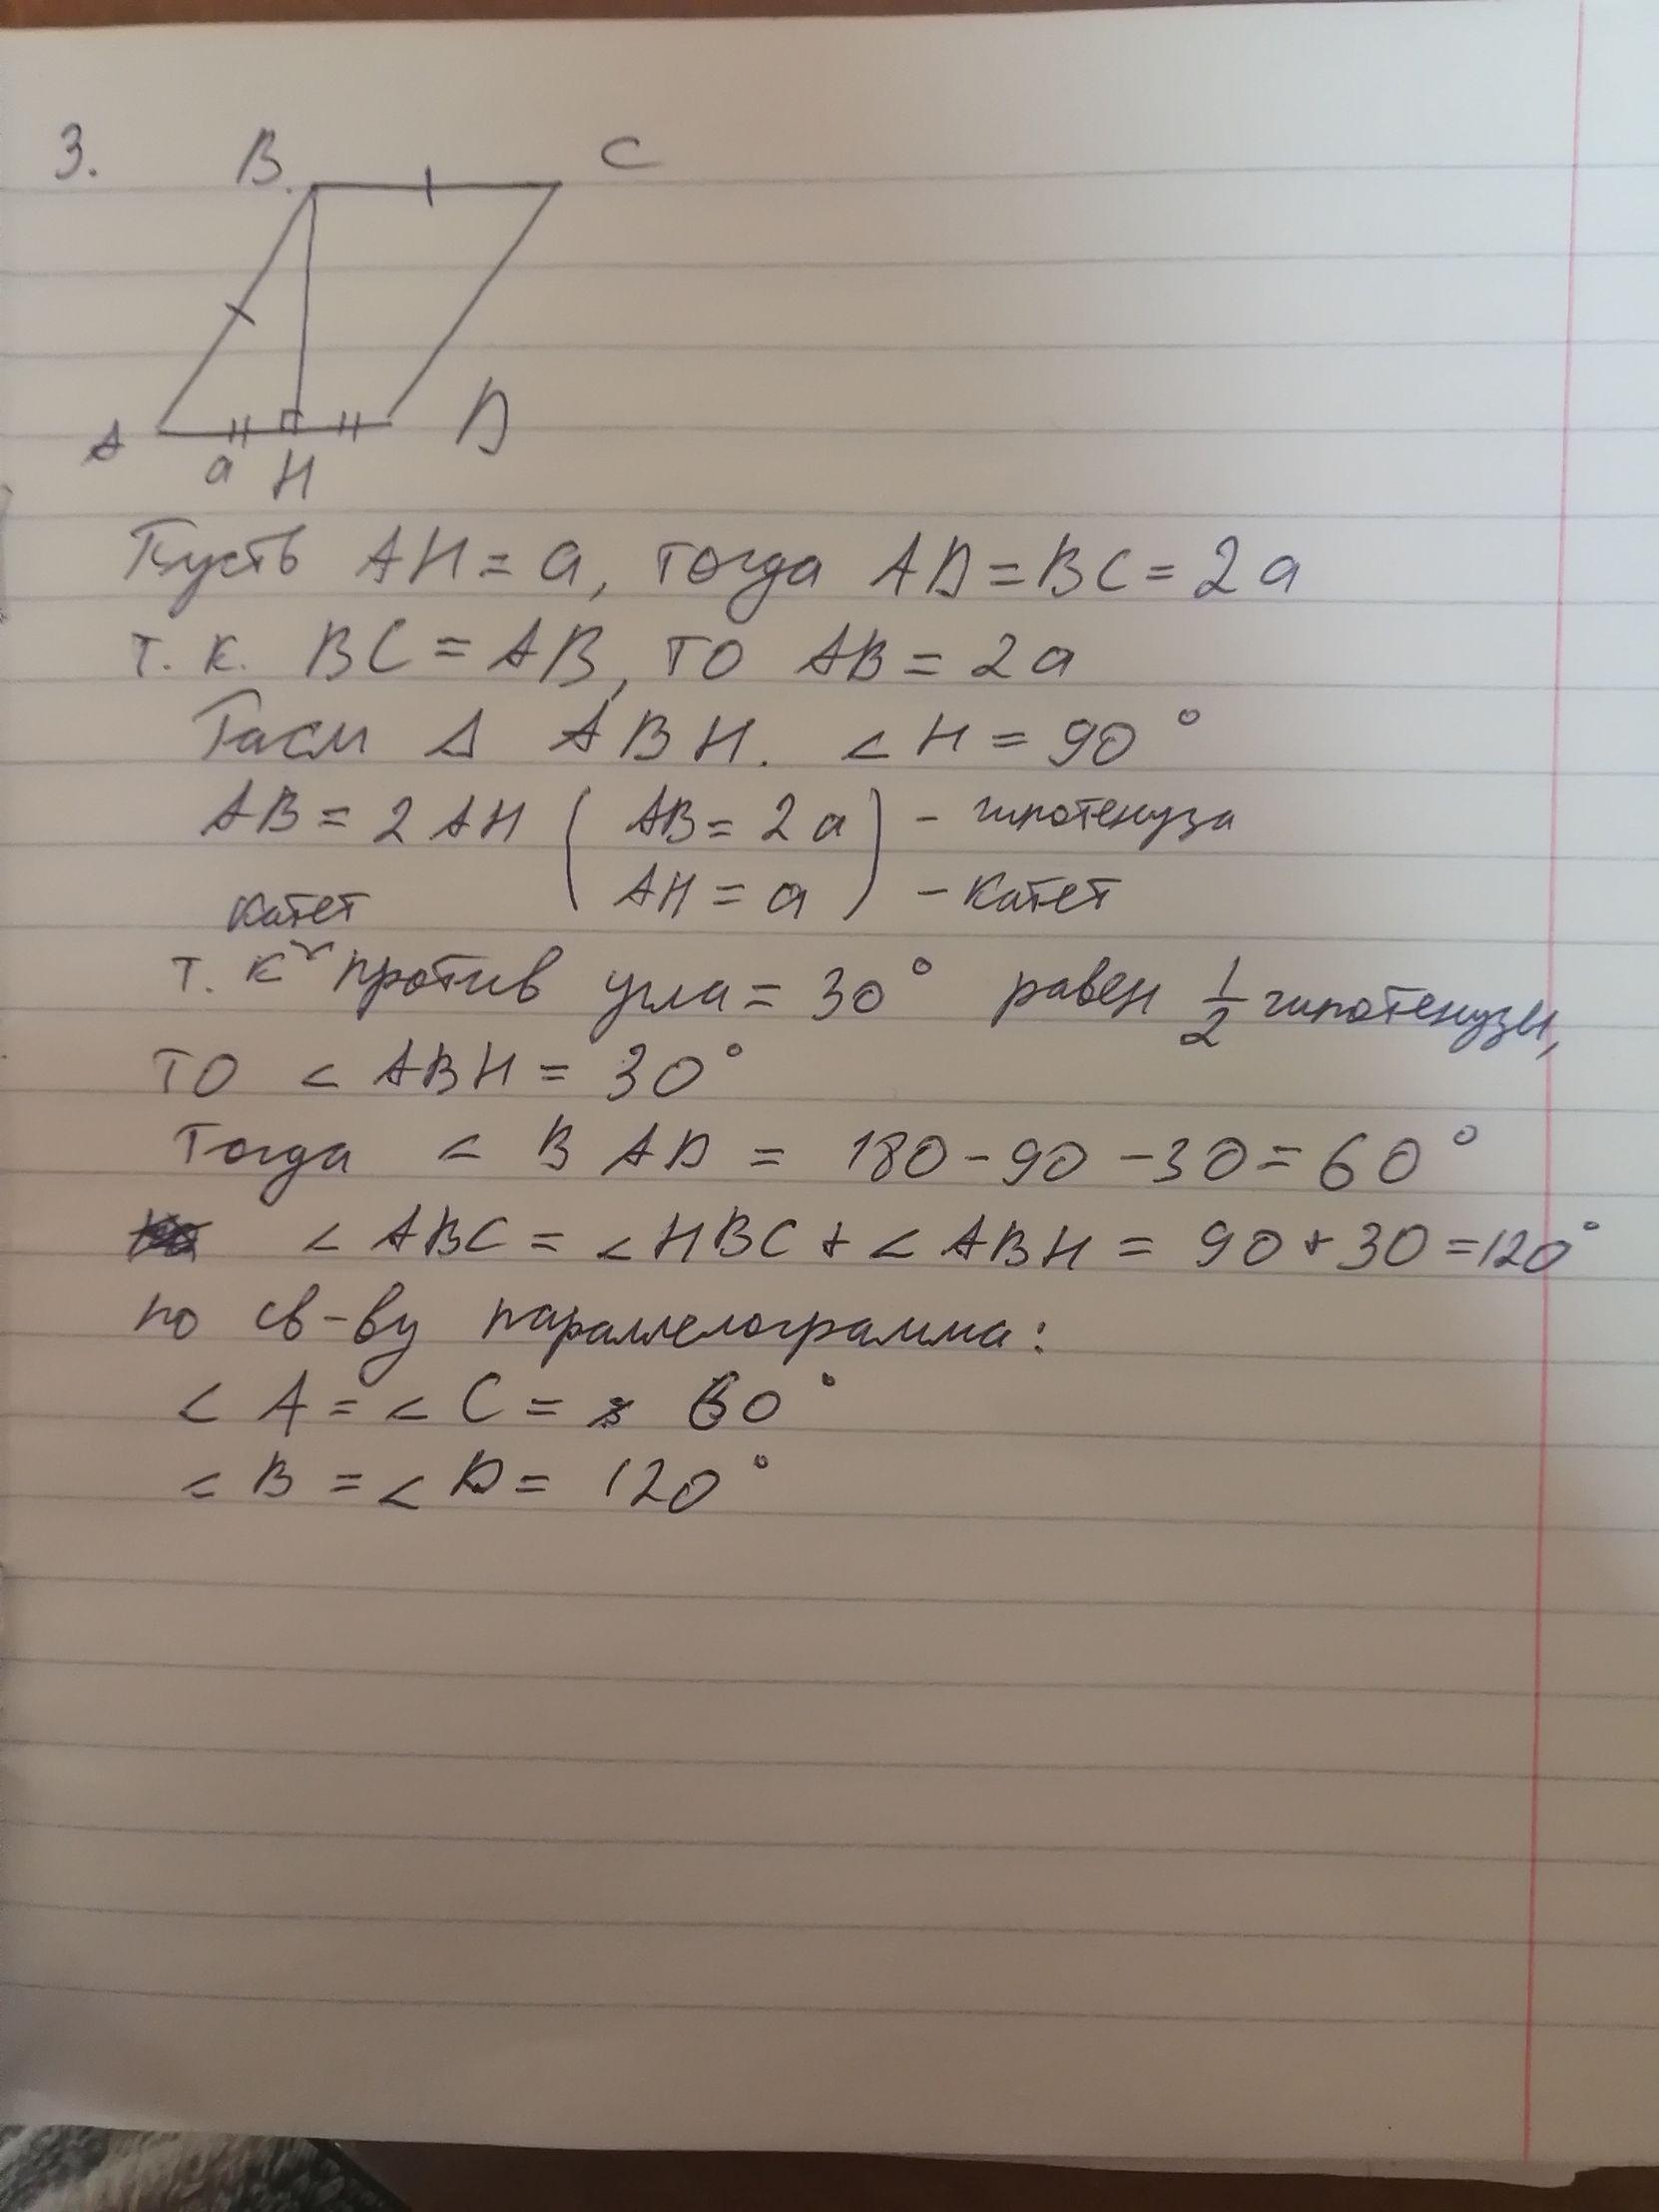 3. B C
A a H D
Пусть AH = a, тогда AD = BC = 2a
т. к. BC = AB, то AB = 2a
Расм Δ ABH. ∠H = 90°
AB = 2AH ( AB = 2a ) - гипотенуза
AH = a - катет
катет
т. к против угла = 30° равен 1/2 гипотенузы,
то ∠ABH = 30°
Тогда ∠BAD = 180 - 90 - 30 = 60°
∠ABC = ∠HBC + ∠ABH = 90 + 30 = 120°
по св-ву параллелограмма:
∠A = ∠C = 60°
∠B = ∠D = 120°